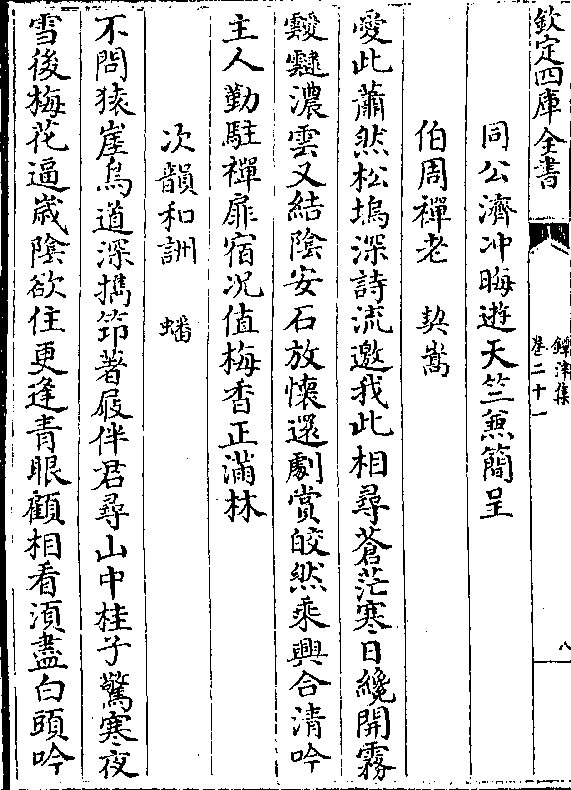 欽定四庫全書
鐔津集
卷二十一
八
同公濟冲晦遊天竺兼簡呈
伯周禪老　契嵩
愛此蕭然松塢深詩流邀我此相尋蒼茫寒日纔開霧
靉靆濃雲又結陰安石放懷還劇賞皎然乘興合清吟
主人勤駐禪扉宿况值梅香正滿林
次韻和詶　蟠
不問猿崖鳥道深攜笻著屐伴君尋山中桂子驚寒夜
雪後梅花逼歲陰欲住更逢青眼顧相看湏盡白頭吟